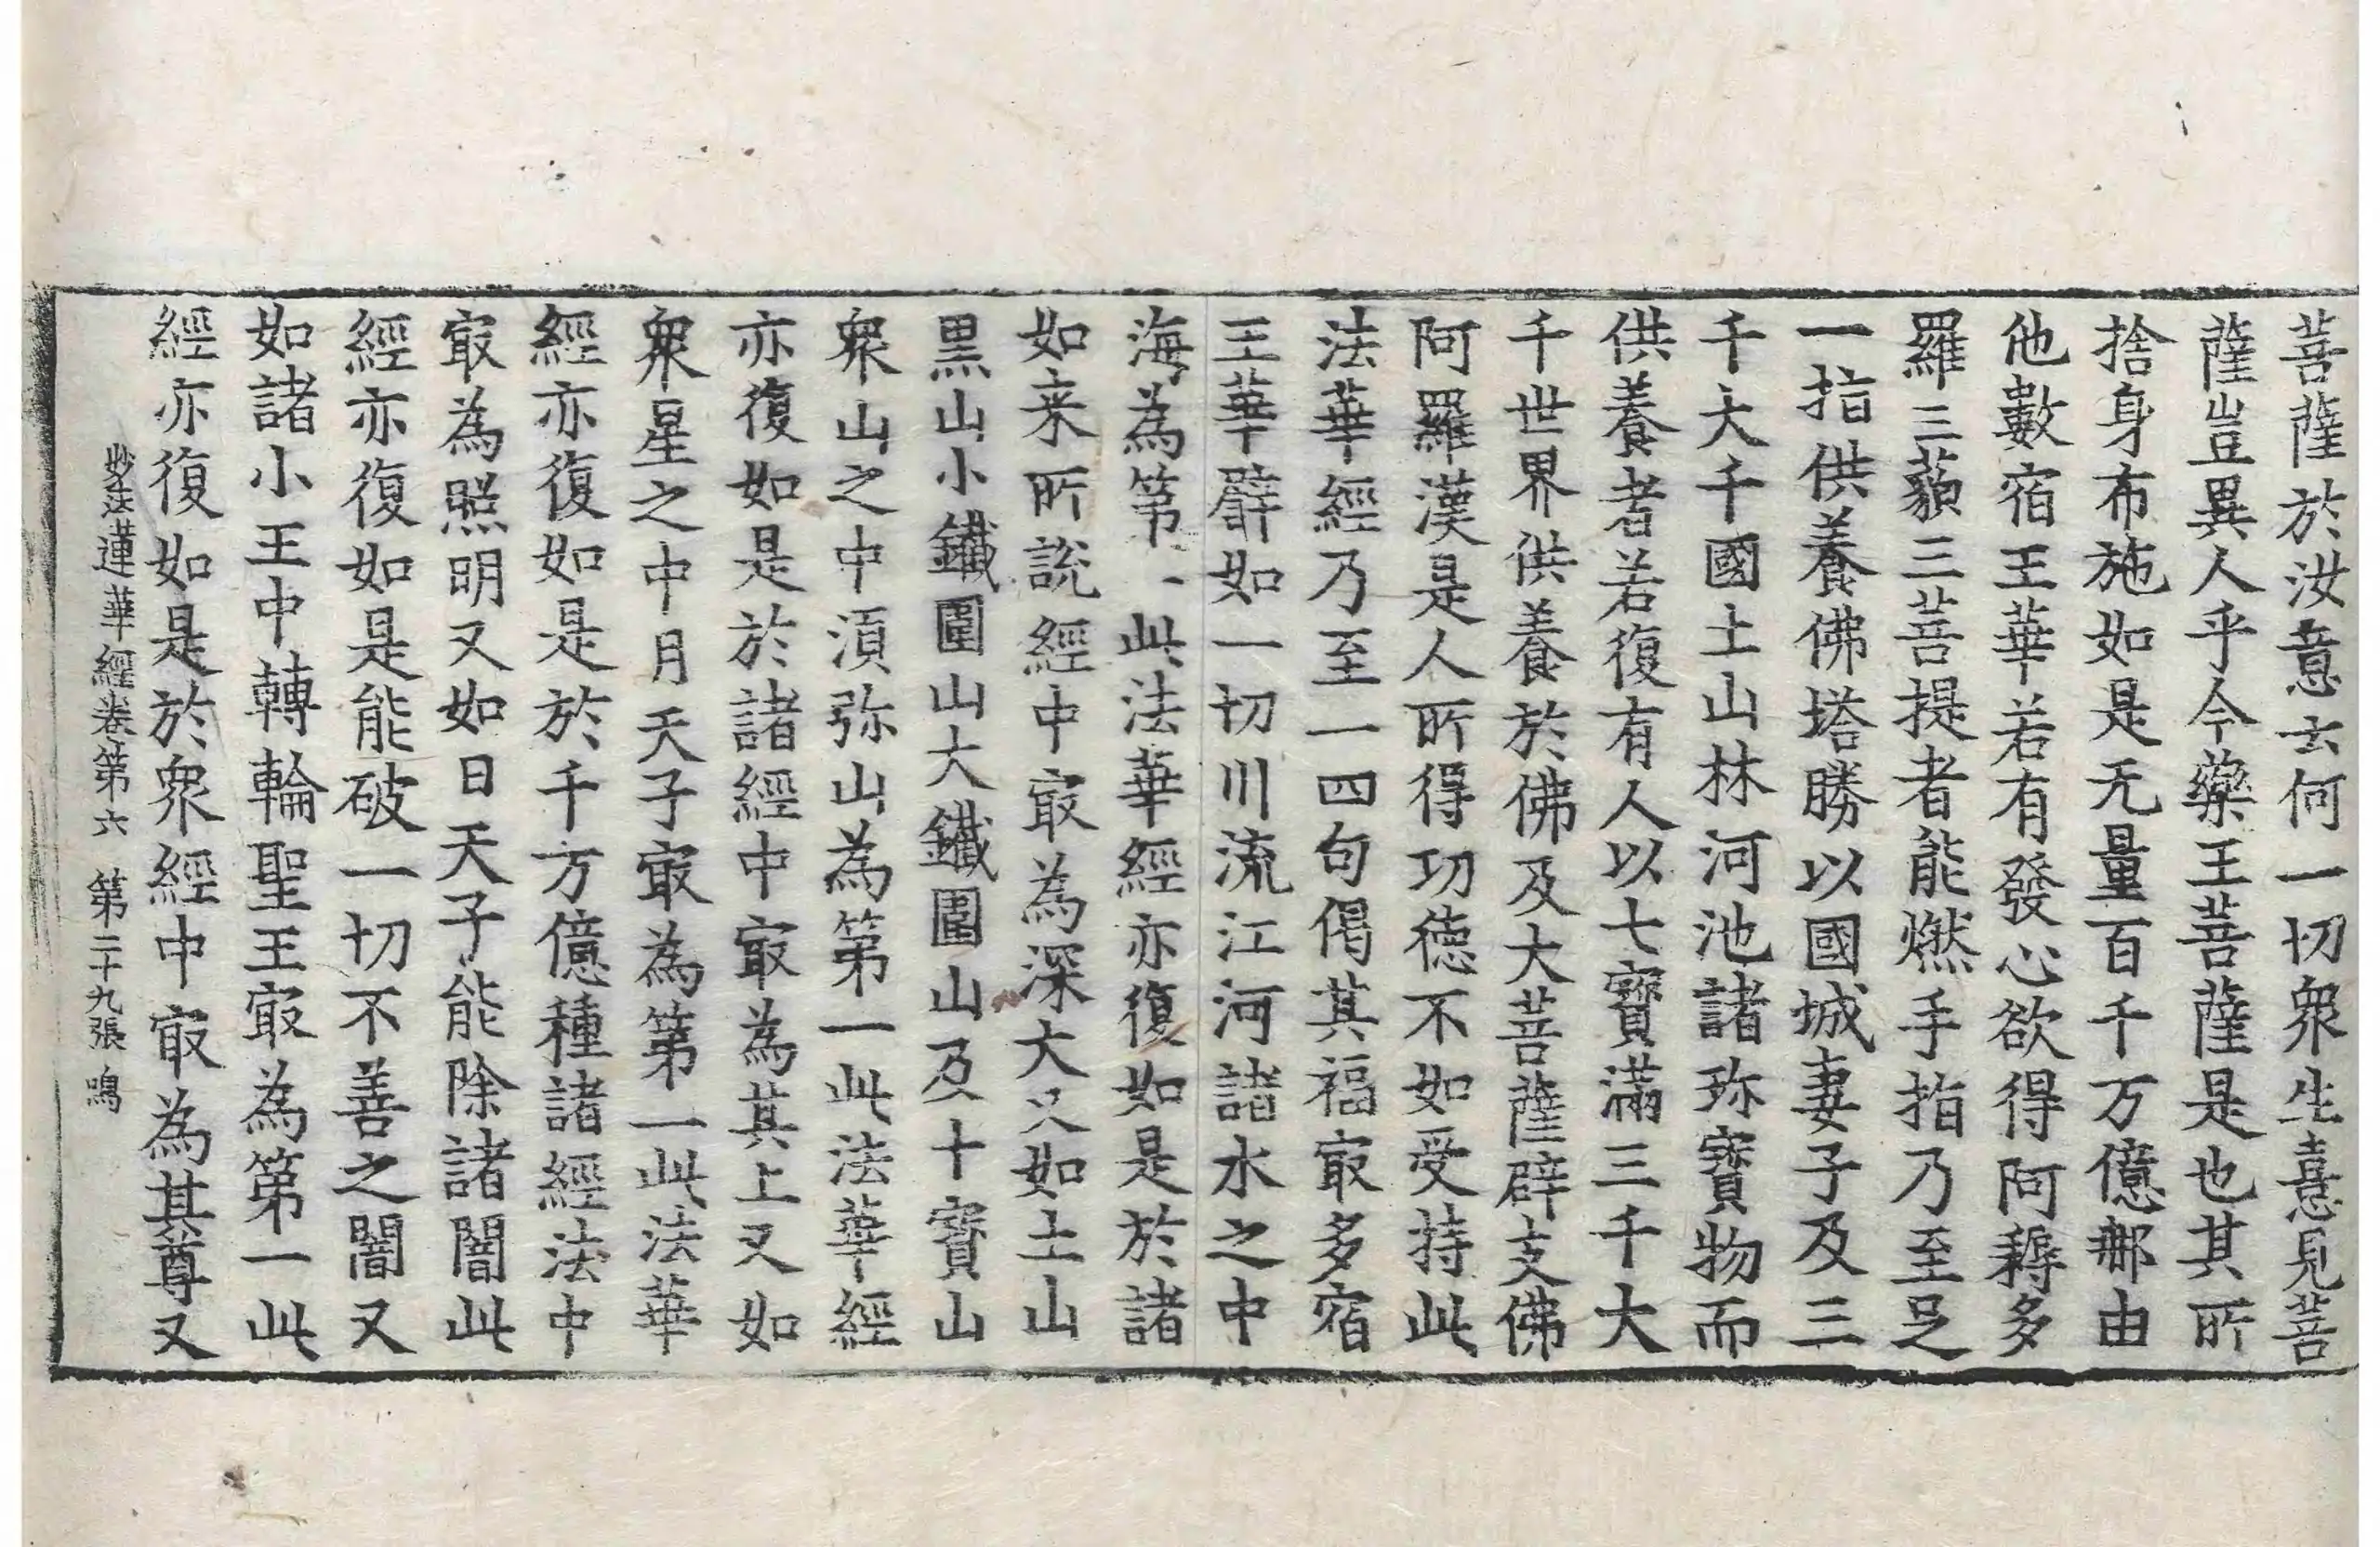 菩薩於汝意云何一切衆生憙見菩
薩豈異人乎今藥王菩薩是也其所
捨身布施如是无量百千万億那由
他數宿王華若有發心欲得阿耨多
羅三藐三菩提者能燃手指乃至足
一指供養佛塔勝以國城妻子及三
千大千國土山林河池諸珎寶物而
供養者若復有人以七寶滿三千大
千世界供養於佛及大菩薩辟支佛
阿羅漢是人所得功德不如受持此
法華經乃至一四句偈其福㝡多宿
王華譬如一切川流江河諸水之中
海為第一此法華經亦復如是於諸
如来所說經中㝡為深大又如土山
黒山小鐵圍山大鐵圍山及十寶山
衆山之中湏弥山為第一此法華經
亦復如是於諸經中㝡為其上又如
衆星之中月天子㝡為第一此法華
經亦復如是於千万億種諸經法中
㝡為照明又如日天子能除諸闇此
經亦復如是能破一切不善之闇又
如諸小王中轉輪聖王㝡為第一此
經亦復如是於衆經中㝡為其尊又
妙法蓮華經卷第六 第二十九張 鳴